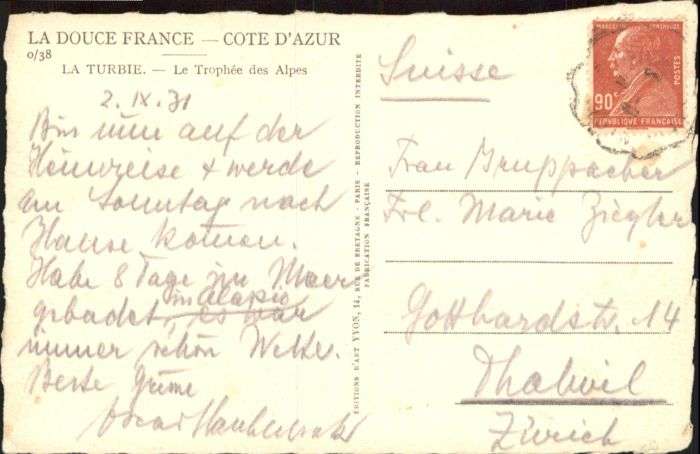 LA DOUCE FRANCE — COTE D'AZUR
0/38
LA TURBIE. — Le Trophée des Alpes
2. IX. 31
Bin nun auf der
Heimreise + werde
am Sonntag nach
Hause komen.
Habe 8 Tage im Meer
in Alassio
gebadet, es war
immer schön Wetter.
Beste Grüsse
Oscar
EDITIONS D'ART YVON, 14, RUE DE BRETAGNE - PARIS - REPRODUCTION INTERDITE
FABRICATION FRANÇAISE
MARCELLIN BERTHELOT
POSTES
90c
REPUBLIQUE FRANÇAISE
Suisse
Frau Gruppacher
Frl. Marie Ziegler
Gotthardstr. 14
Thalwil
Zürich